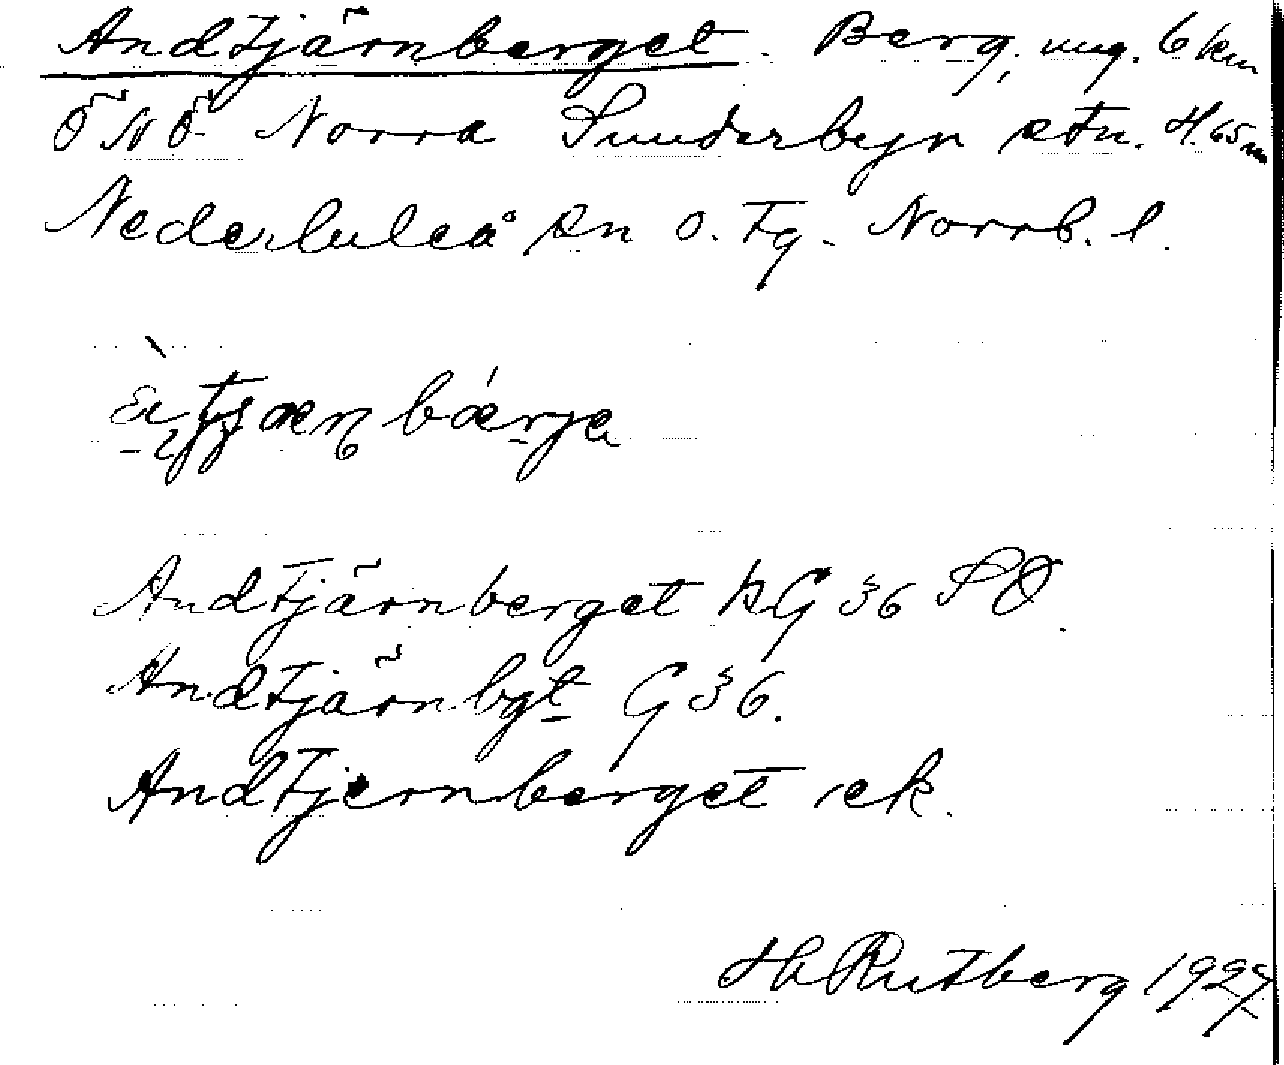 Andtjärnberget. Berg, ung. 6 km
ÖNÖ Norra Sunderbyn stn. H. 65 m
Nederluleå sn o. tg. Norrb. l.
Andtjärnberget kG 36 SO.
Andtjärnbgt G 36.
Andtjernberget ek.
Hb Rutberg 1927